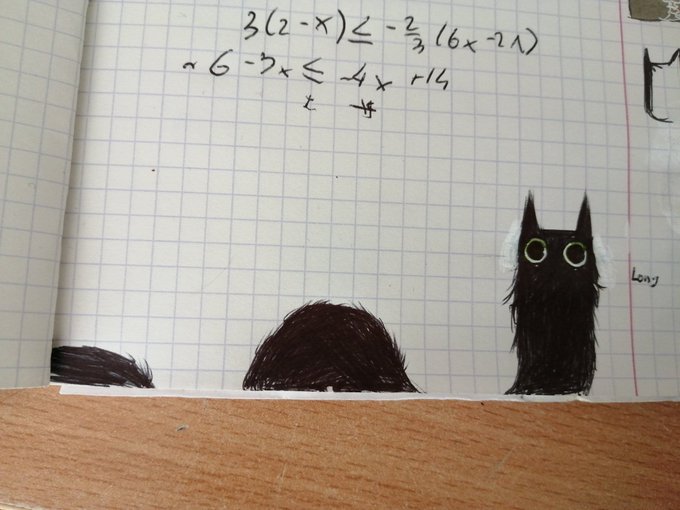 3(2-x) ≤ -2/3 (6x-21)
~ 6 -3x ≤ -4x +14
Long